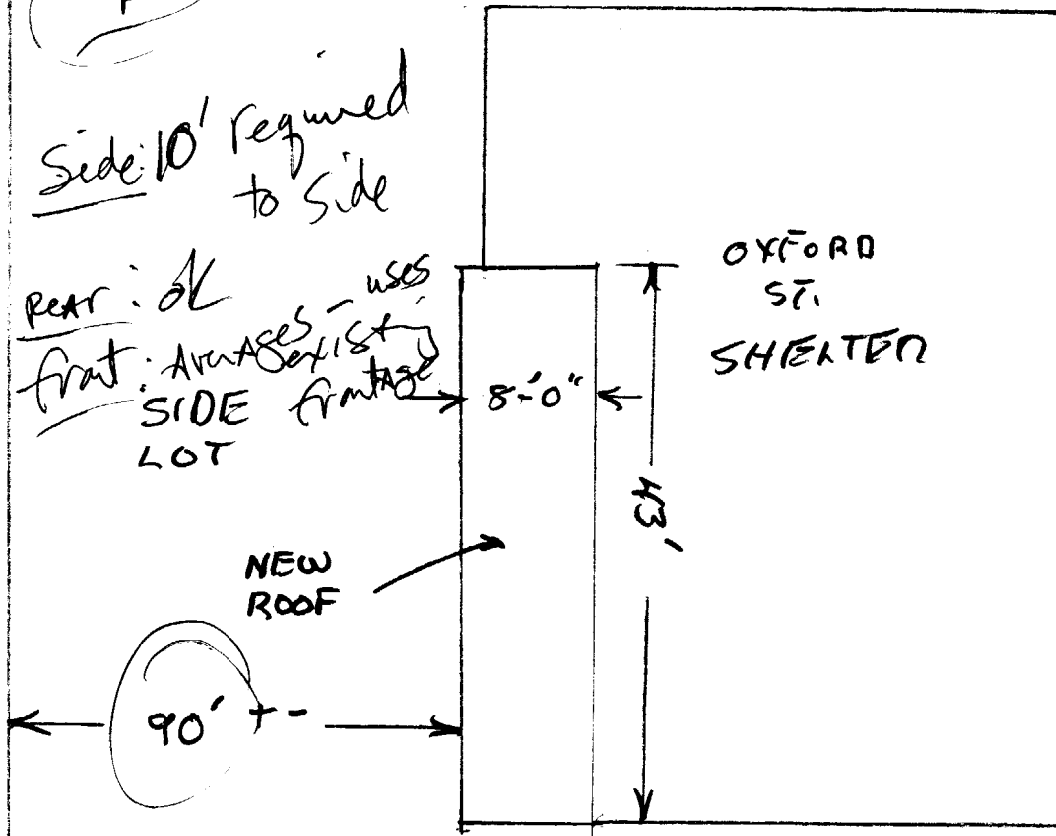 Side: 10' required
to side
Rear: OK
front: Averages - uses
exist
SIDE frontage
LOT
OXFORD
ST.
SHELTER
8'-0"
43'
NEW
ROOF
90' +-